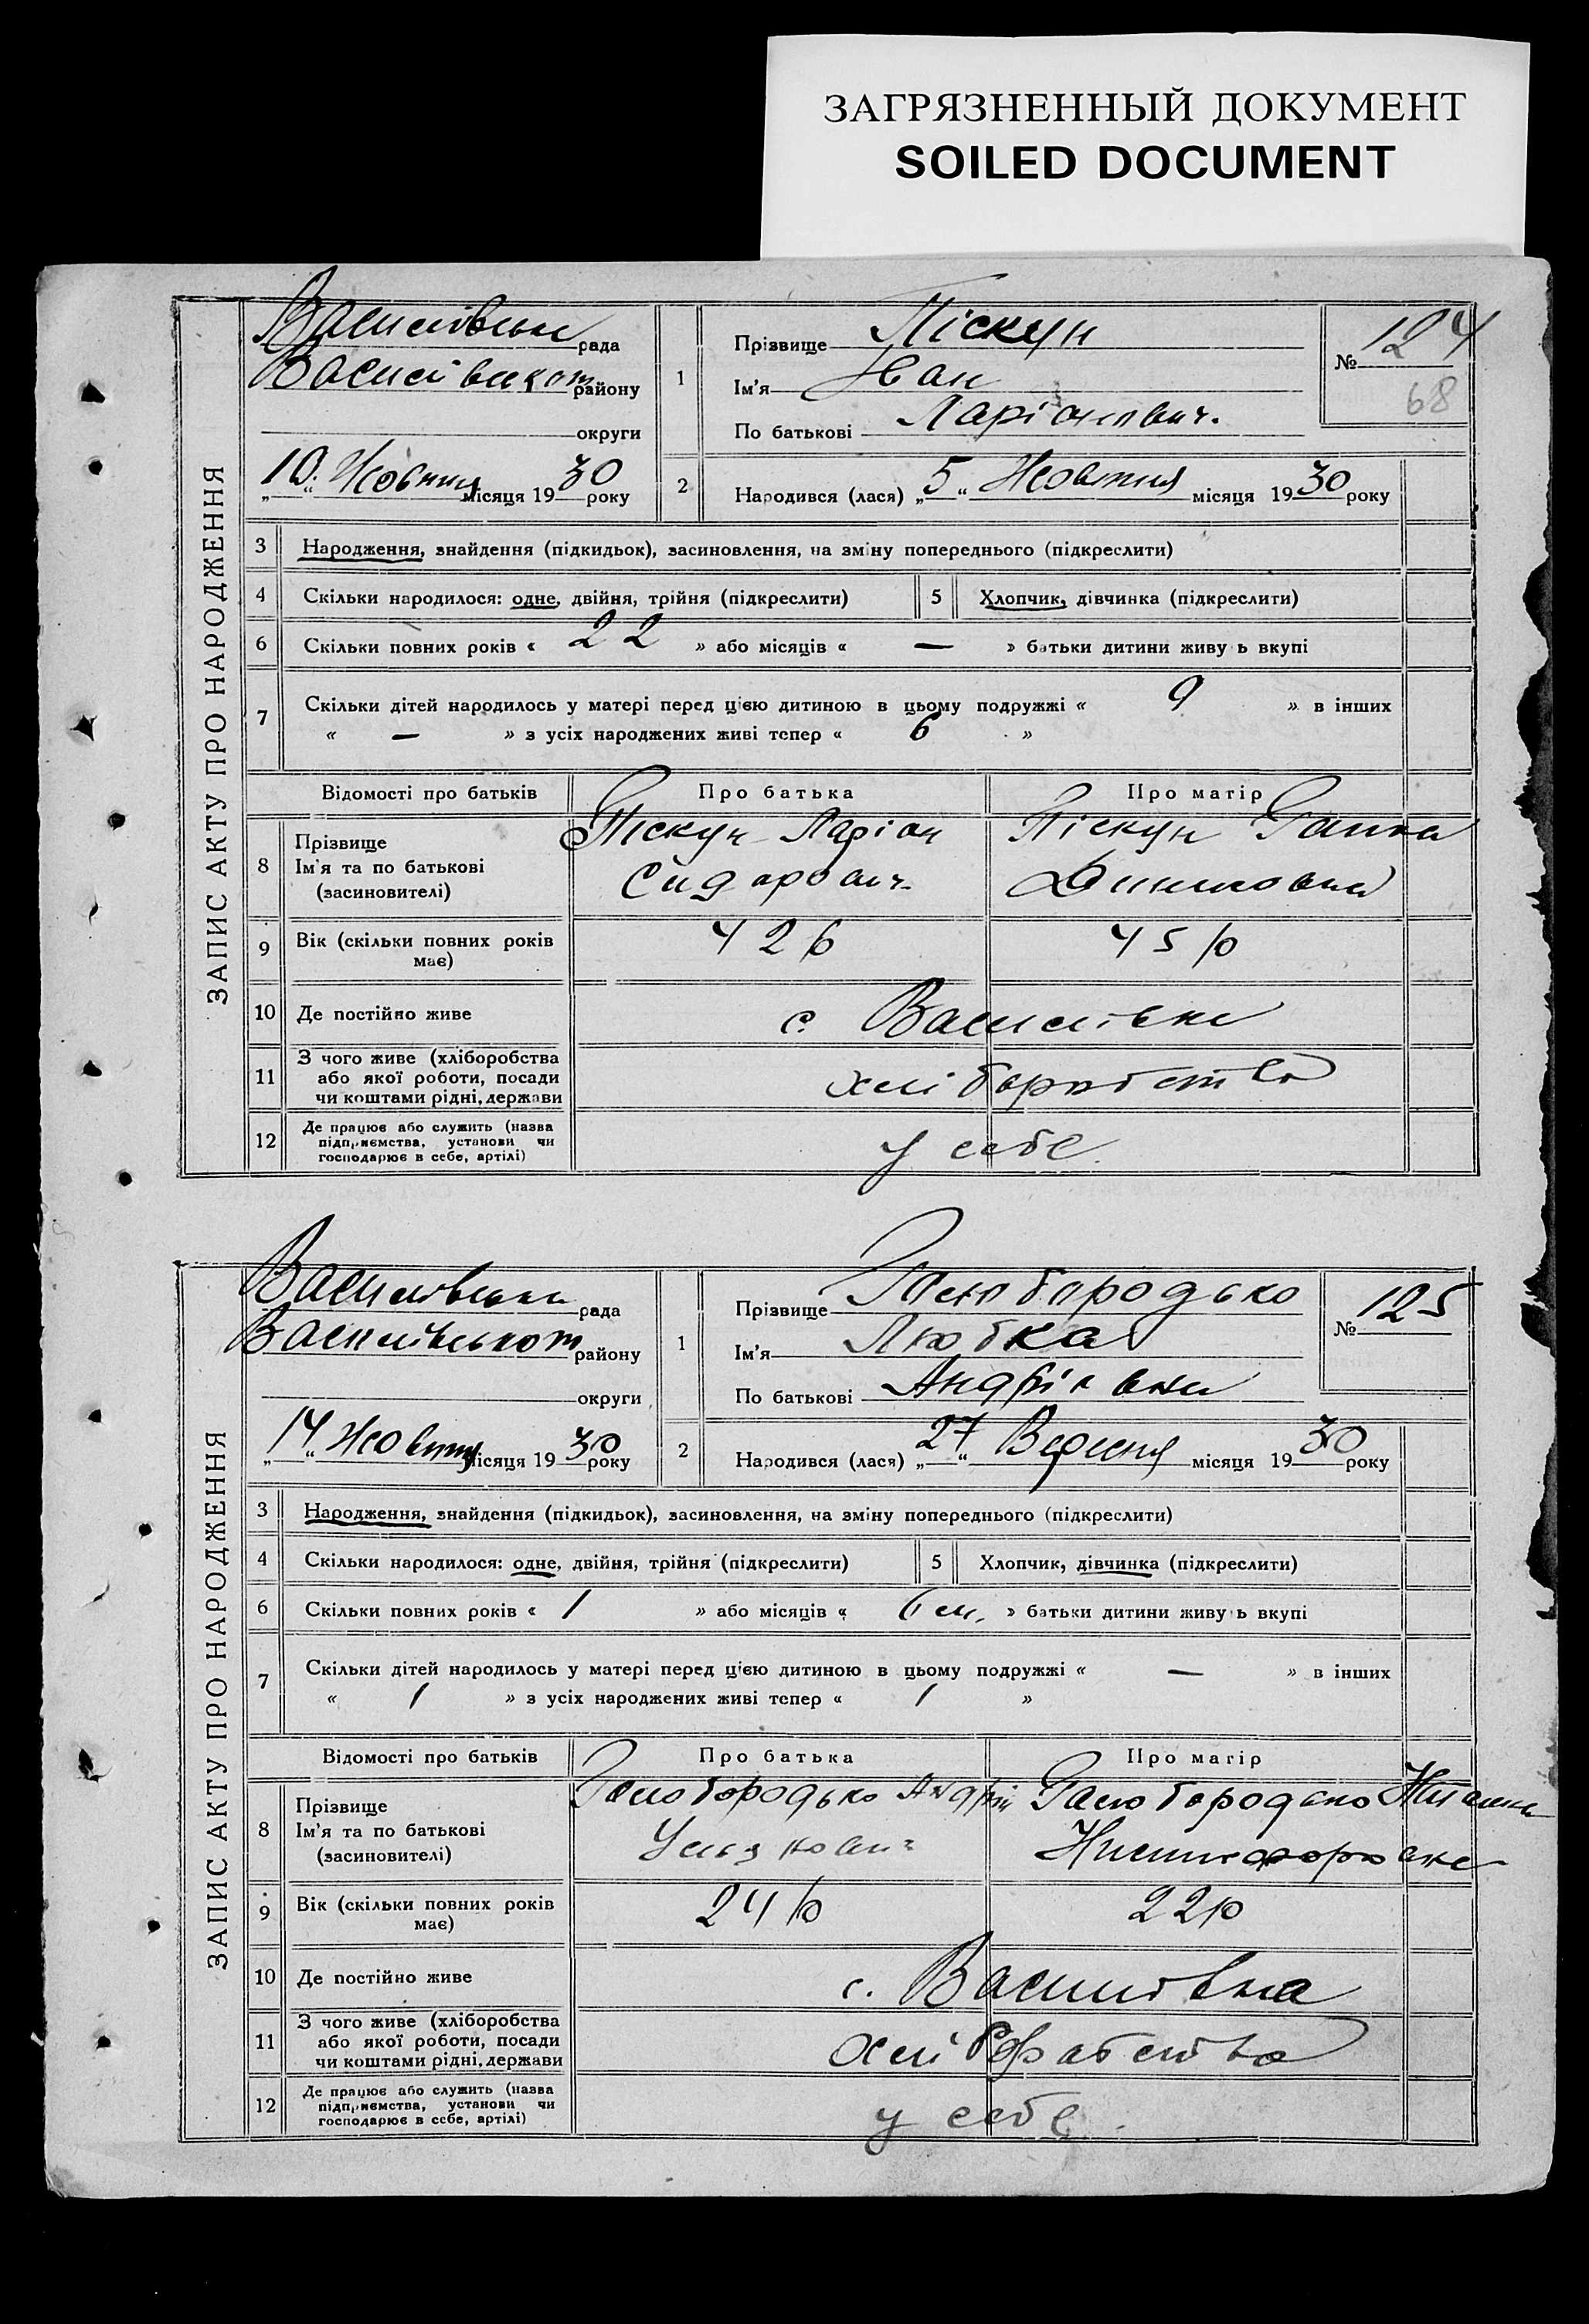 ЗАГРЯЗНЕННЫЙ ДОКУМЕНТ
SOILED DOCUMENT
ЗАПИС АКТУ ПРО НАРОДЖЕННЯ
Василівська рада
Василівського району
округи
„10“ Жовтня місяця 1930 року
1
Прізвище Піскун
Ім'я Іван
По батькові Ларіонович.
№ 124
68
2
Народився (лася) „5“ Жовтня місяця 1930 року
3 Народження, знайдення (підкидьок), засиновлення, на зміну попереднього (підкреслити)
4 Скільки народилося: одне, двійня, трійня (підкреслити) 5 Хлопчик, дівчинка (підкреслити)
6 Скільки повних років « 22 » або місяців « — » батьки дитини живуть вкупі
7 Скільки дітей народилось у матері перед цією дитиною в цьому подружжі « 9 » в інших
« — » з усіх народжених живі тепер « 6 »
Відомості про батьків Про батька Про матір
8 Прізвище Ім'я та по батькові (засиновителі)
Піскун Ларіон
Сидорович
Піскун Ганна
9 Вік (скільки повних років має) 42 р 45 р
10 Де постійно живе с. Василівка
11 З чого живе (хліборобства або якої роботи, посади чи коштами рідні, держави хліборобство
12 Де працює або служить (назва підприємства, установи чи господарює в себе, артілі) у себе
ЗАПИС АКТУ ПРО НАРОДЖЕННЯ
Василівська рада
Василівського району
округи
„14“ Жовтня місяця 1930 року
1
Прізвище Голобородько
Ім'я Любка
По батькові Андріївна
№ 125
2
Народився (лася) „27“ Вересня місяця 1930 року
3 Народження, знайдення (підкидьок), засиновлення, на зміну попереднього (підкреслити)
4 Скільки народилося: одне, двійня, трійня (підкреслити) 5 Хлопчик, дівчинка (підкреслити)
6 Скільки повних років « 1 » або місяців « 6 м. » батьки дитини живуть вкупі
7 Скільки дітей народилось у матері перед цією дитиною в цьому подружжі « — » в інших
« 1 » з усіх народжених живі тепер « 1 »
Відомості про батьків Про батька Про матір
8 Прізвище Ім'я та по батькові (засиновителі)
Голобородько Андрій
Голобородько
9 Вік (скільки повних років має) 24 р 22 р
10 Де постійно живе с. Василівка
11 З чого живе (хліборобства або якої роботи, посади чи коштами рідні, держави хліборобство
12 Де працює або служить (назва підприємства, установи чи господарює в себе, артілі) у себе.